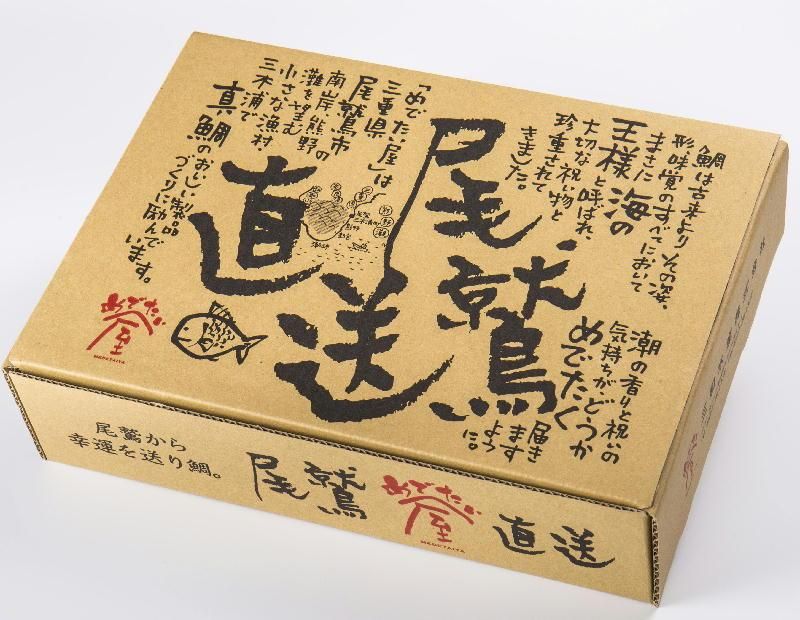 鯛は古来よりその姿、
形味覚のすべてにおいて
まさに
王様 海の
大切な祝い物と
珍重されて
きました。
尾鷲
直送
潮の香りと祝いの
気持ちがどうか
めでたく
届き
ます
よう
に。
「めでたい屋」は
三重県
尾鷲市
南岸、熊野
灘を望む
小さな漁村
三木浦で
真鯛のおいしい製品
づくりに励んで
います。
めでたい屋
MEDETAIYA
尾鷲から
幸運を送り鯛。
尾鷲
めでたい屋
MEDETAIYA
直送